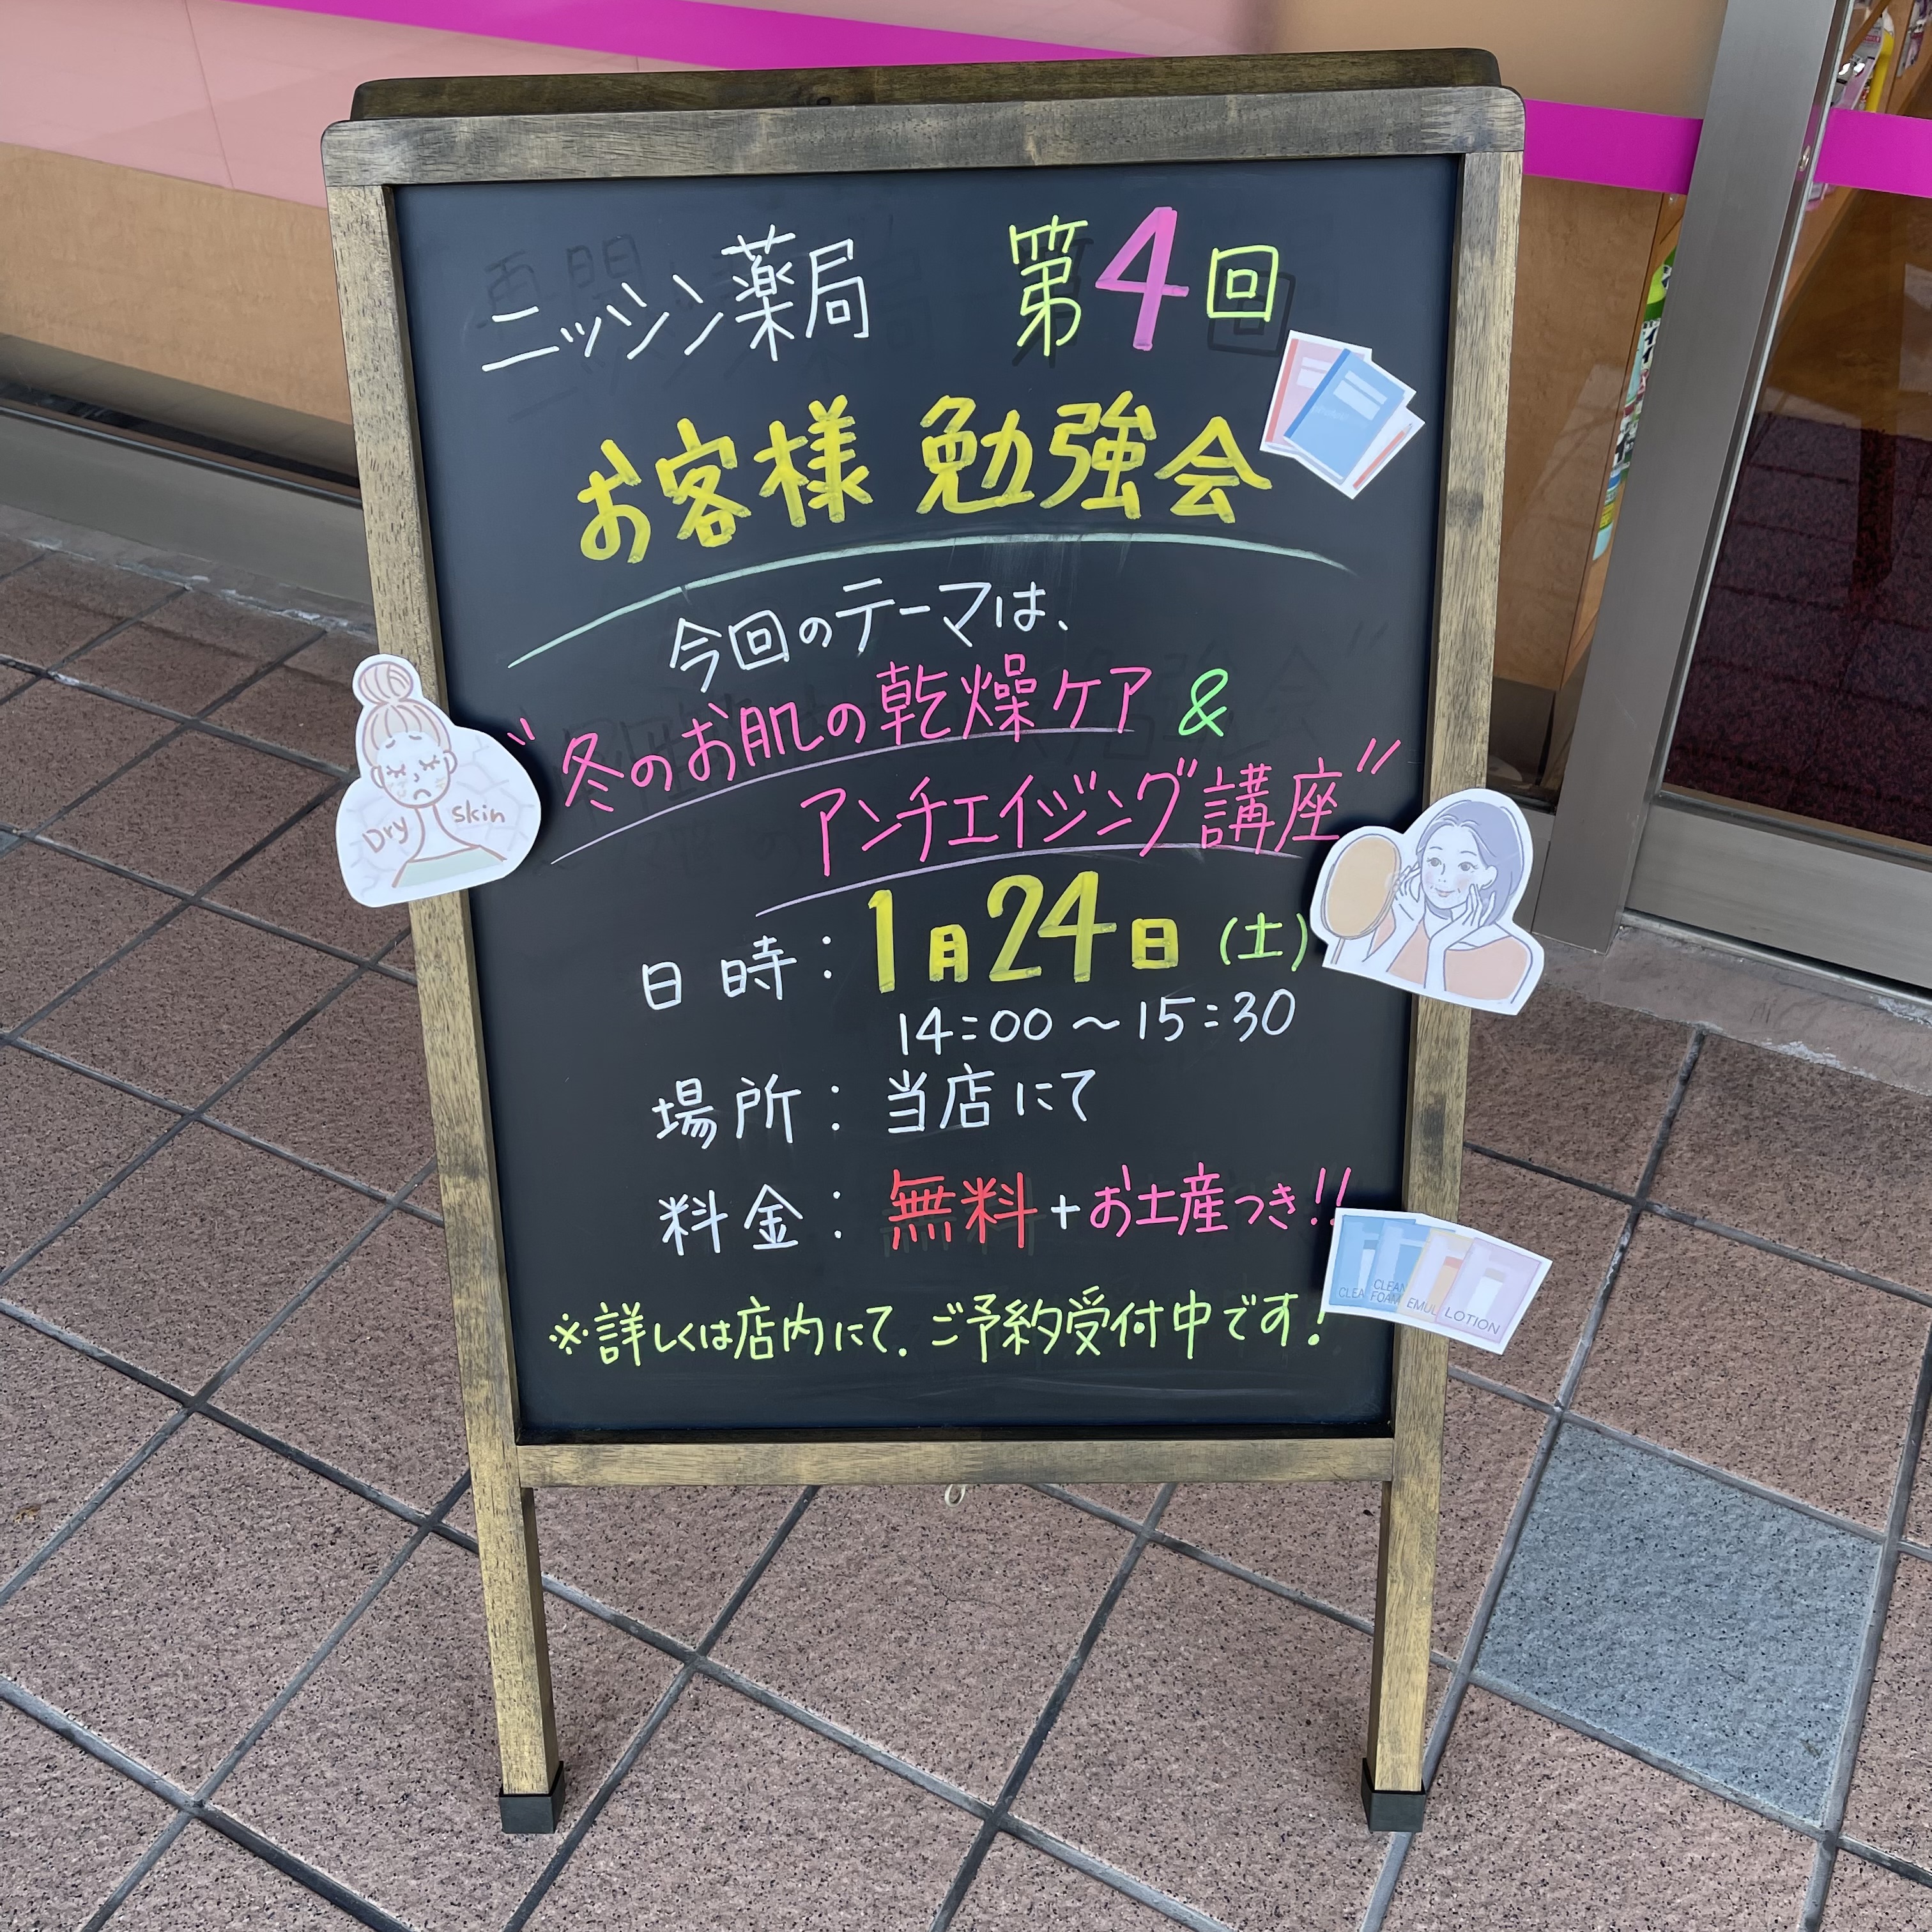 ニッシン薬局 第4回
お客様 勉強会
今回のテーマは、
"冬のお肌の乾燥ケア &
アンチエイジング講座"
Dry skin
日時：1月24日 (土)
14:00～15:30
場所：当店にて
料金：無料+お土産つき!!
CLEAN FOAM
LOTION
※詳しくは店内にて. ご予約受付中です!